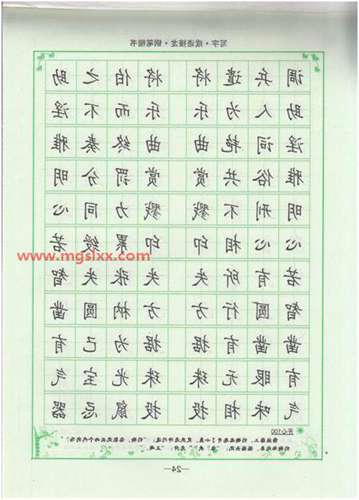 写字·成语接龙·钢笔楷书
调兵遣将 将伯之助
助人为乐 乐而不淫
淫词艳曲 曲终奏雅
雅俗共赏 赏罚分明
明刑不戮 戮力同心
心心相印 印累绶若
www.mgslxx.com
若有所失 失张失智
智圆行方 方枘圆凿
凿凿有据 据为己有
有眼无珠 珠光宝气
气味相投 投鼠忌器
开心100
—24—